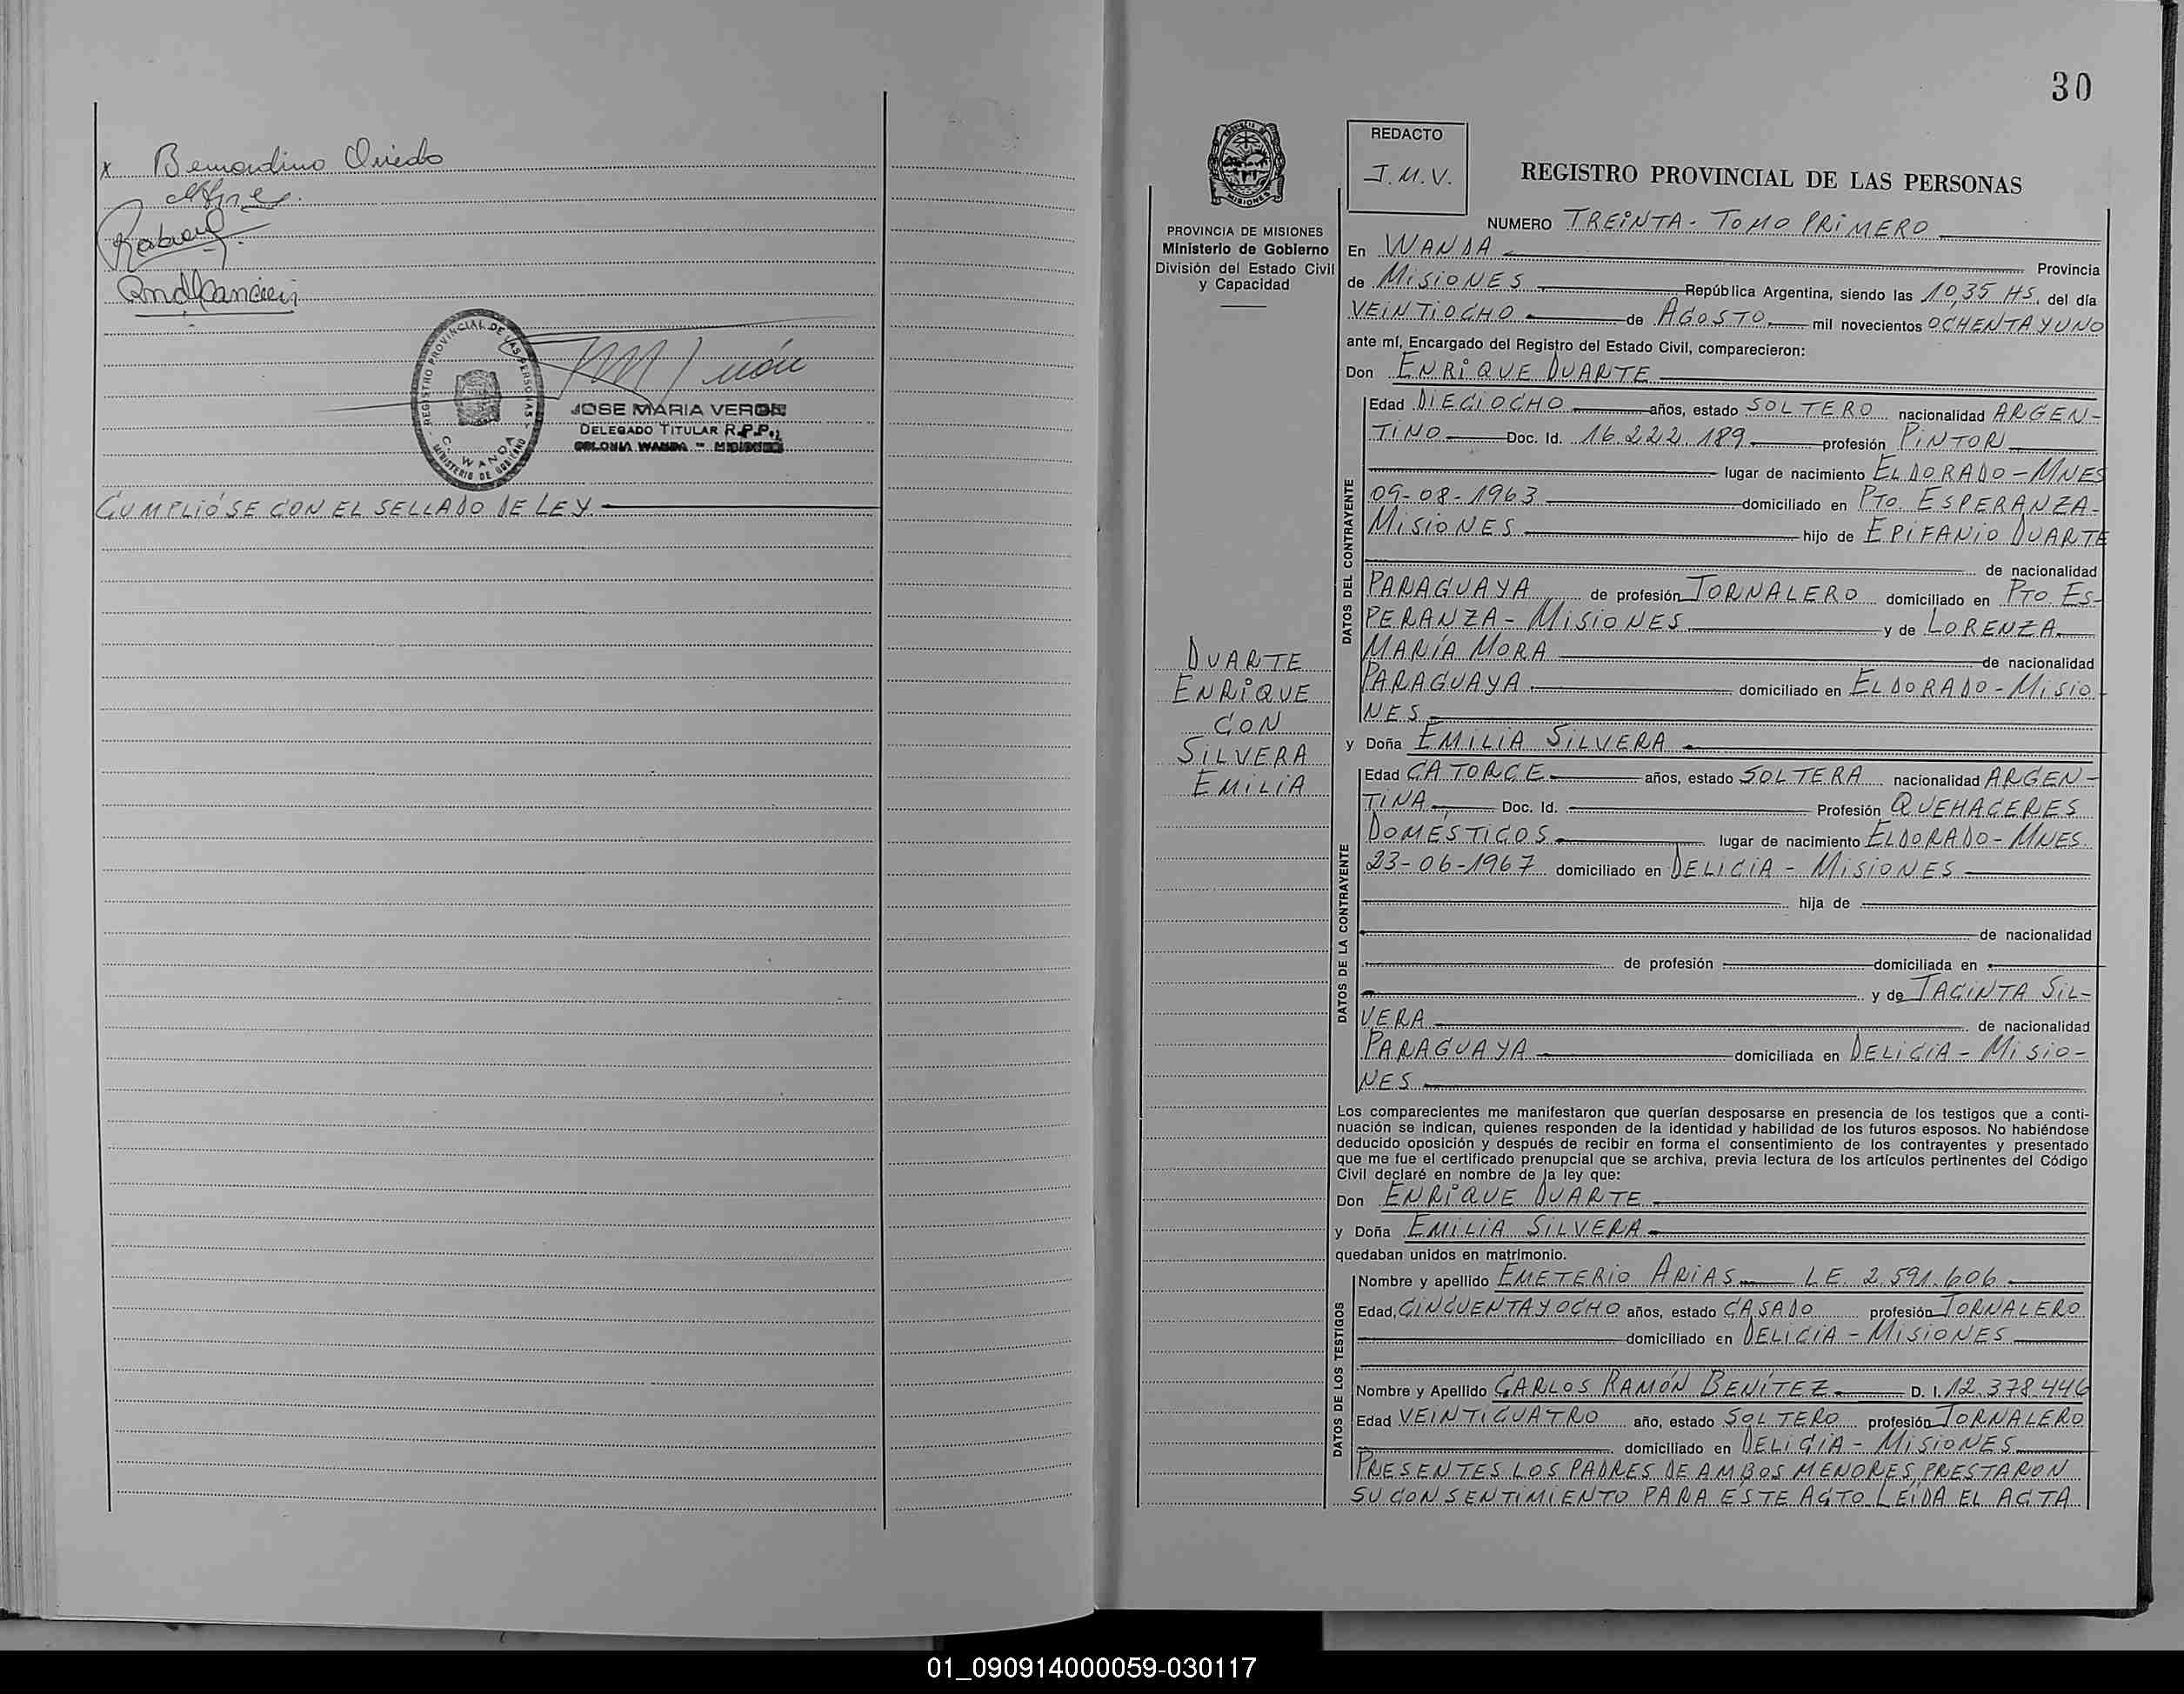 x Bernardino Oviedo
REGISTRO PROVINCIAL DE LAS PERSONAS
C. WANDA
MINISTERIO DE GOBIERNO
JOSE MARIA VERON
DELEGADO TITULAR R.P.P.
COLONIA WANDA - MISIONES
CUMPLIÓSE CON EL SELLADO DE LEY
30
MISIONES
REDACTO
J.M.V.
REGISTRO PROVINCIAL DE LAS PERSONAS
PROVINCIA DE MISIONES
Ministerio de Gobierno
División del Estado Civil
y Capacidad
NUMERO TREINTA - TOMO PRIMERO
En WANDA Provincia
de MISIONES República Argentina, siendo las 10,35 HS. del día
VEINTIOCHO de AGOSTO mil novecientos OCHENTA Y UNO
ante mí, Encargado del Registro del Estado Civil, comparecieron:
Don ENRIQUE DUARTE
DATOS DEL CONTRAYENTE
Edad DIECIOCHO años, estado SOLTERO nacionalidad ARGEN-
TINO Doc. Id. 16.222.189 profesión PINTOR
lugar de nacimiento ELDORADO - MNES
09-08-1963 domiciliado en PTO. ESPERANZA-
MISIONES hijo de EPIFANIO DUARTE
de nacionalidad
PARAGUAYA de profesión JORNALERO domiciliado en PTO. ES-
PERANZA - MISIONES y de LORENZA
MARÍA MORA de nacionalidad
PARAGUAYA domiciliado en ELDORADO - MISIO
NES
DUARTE
ENRIQUE
CON
SILVERA
EMILIA
y Doña EMILIA SILVERA
DATOS DE LA CONTRAYENTE
Edad CATORCE años, estado SOLTERA nacionalidad ARGEN-
TINA Doc. Id. Profesión QUEHACERES
DOMÉSTICOS lugar de nacimiento ELDORADO - MNES.
23-06-1967 domiciliado en DELICIA - MISIONES
hija de
de nacionalidad
de profesión domiciliada en
y de JACINTA SIL-
VERA de nacionalidad
PARAGUAYA domiciliada en DELICIA - MISIO-
NES
Los comparecientes me manifestaron que querían desposarse en presencia de los testigos que a conti-
nuación se indican, quienes responden de la identidad y habilidad de los futuros esposos. No habiéndose
deducido oposición y después de recibir en forma el consentimiento de los contrayentes y presentado
que me fue el certificado prenupcial que se archiva, previa lectura de los artículos pertinentes del Código
Civil declaré en nombre de la ley que:
Don ENRIQUE DUARTE
y Doña EMILIA SILVERA
quedaban unidos en matrimonio.
DATOS DE LOS TESTIGOS
Nombre y apellido EMETERIO ARIAS LE 2.591.606
Edad, CINCUENTA Y OCHO años, estado CASADO profesión JORNALERO
domiciliado en DELICIA - MISIONES
Nombre y Apellido CARLOS RAMÓN BENÍTEZ D. I. 12.378.446
Edad VEINTICUATRO año, estado SOLTERO profesión JORNALERO
domiciliado en DELICIA - MISIONES
PRESENTES LOS PADRES DE AMBOS MENORES, PRESTARON
SU CONSENTIMIENTO PARA ÉSTE ACTO. LEÍDA EL ACTA
01_090914000059-030117